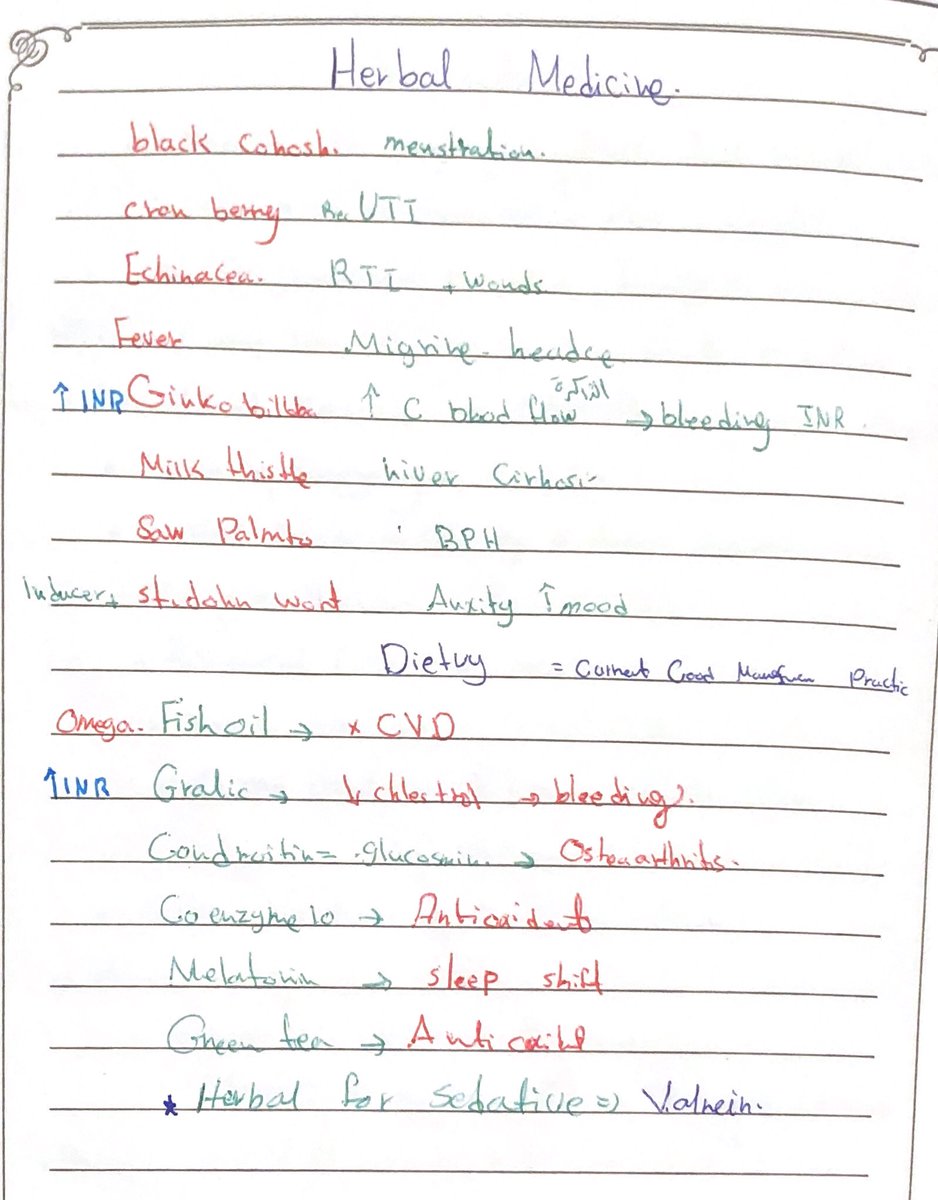 Herbal Medicine.
black cohosh. menstration.
cren berry Rec UTI
Echinacea. RTI + wouds
Fever Migrine headce
الذاكرة
↑ INR Ginko bilbba ↑ C blood flow → bleeding INR.
Milk thistle liver Cirhosis
Saw Palmto BPH
Inducer + st.John wort Auxity ↑ mood
Dietury = Current Good Manfucn Practic
Omega. Fish oil → × CVD
↑ INR Gralic → ↓ chlestrol → bleeding.
Condroitin = glucosmin. → Osteoarthrits.
Coenzyme 10 → Antioxident
Melatonin → sleep shift
Green tea → Anti
★ Herbal for Sedative ⇒